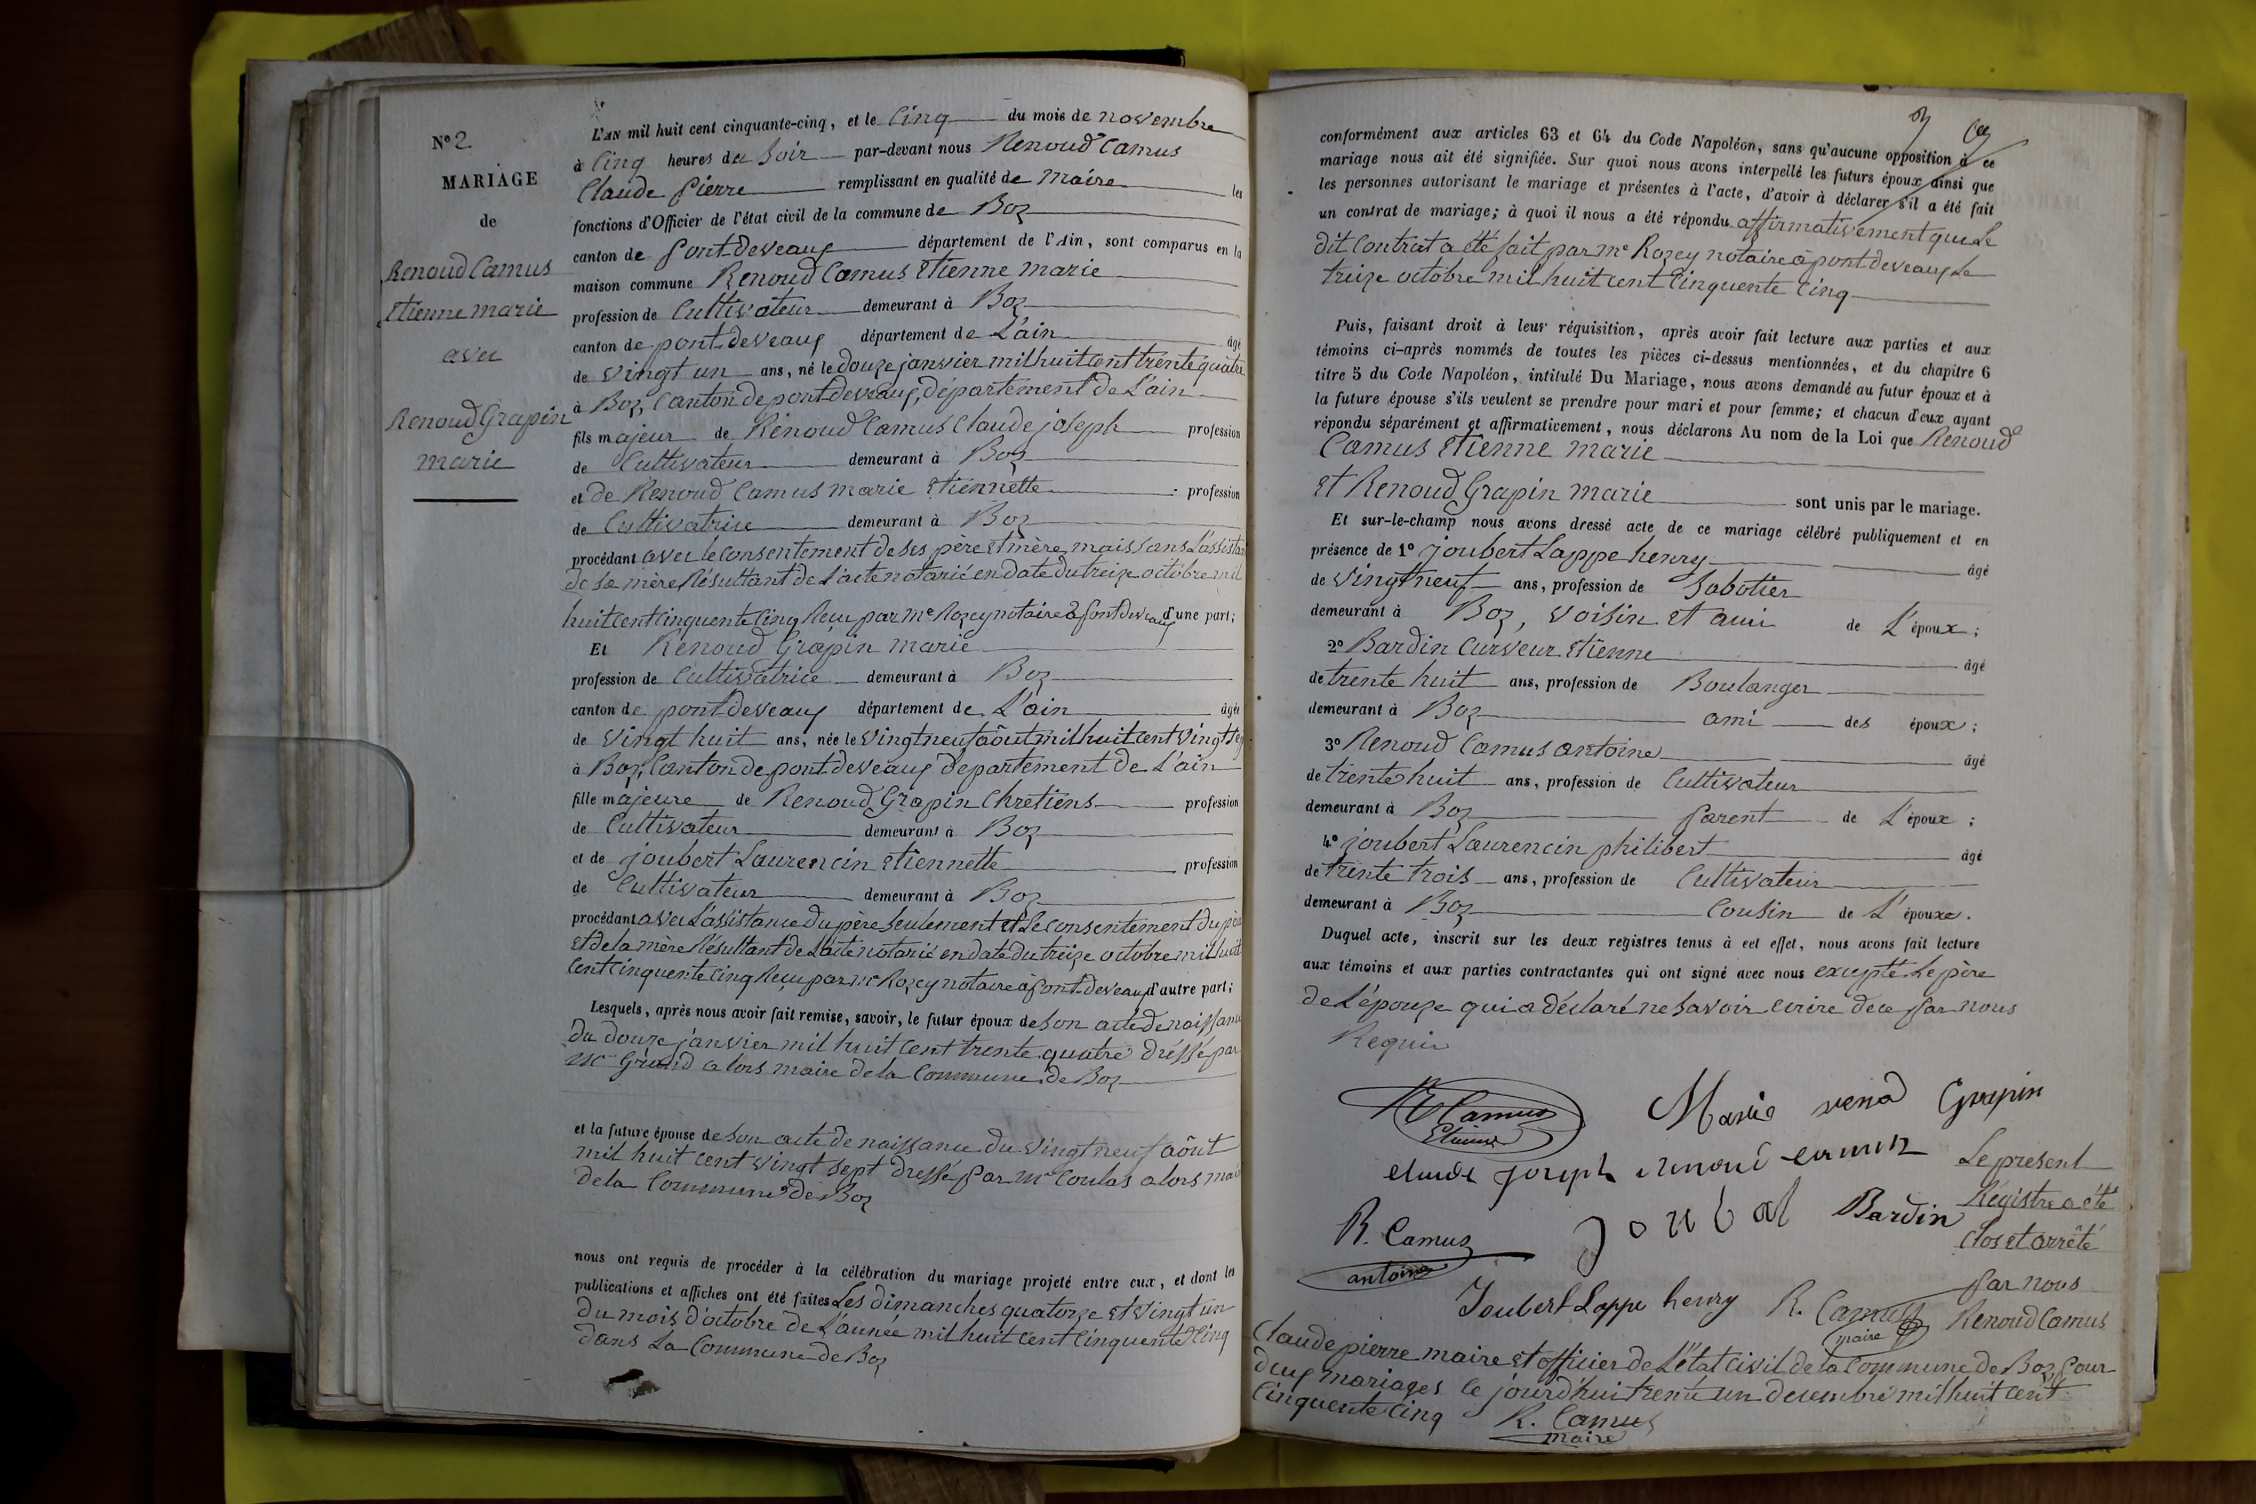 N° 2.
MARIAGE
de
Renoud Camus
Etienne marie
avec
Renoud Grapin
marie
L'AN mil huit cent cinquante-cinq, et le Cinq du mois de novembre
à Cinq heures du Soir par-devant nous Renoud Camus
Claude pierre remplissant en qualité de maire les
fonctions d'Officier de l'état civil de la commune de Boz
canton de pont-deveaux département de l'Ain, sont comparus en la
maison commune Renoud Camus Etienne marie
profession de Cultivateur demeurant à Boz
canton de pont-deveaux département de L'ain âgé
de vingt un ans, né le douze janvier mil huit cent trente quatre
à Boz, Canton de pont-deveaux, département de L'ain
fils majeur de Renoud Camus Claude joseph profession
de Cultivateur demeurant à Boz
et de Renoud Camus marie Etiennette profession
de Cultivatrice demeurant à Boz
procédant avec le consentement de ses père et mère mais sans L'assistan
de sa mère Résultant de L'acte notarié en date du treize octobre mil
huit cent cinquente cinq Reçu par Me Rozey notaire à pont-deveaux d'une part;
Et Renoud Grapin marie
profession de Cultivatrice demeurant à Boz
canton de pont-deveaux département de L'ain âgée
de vingt huit ans, née le vingt neuf août mil huit cent vingt sep
à Boz, Canton de pont-deveaux département de L'ain
fille majeure de Renoud Grapin Chretiens profession
de Cultivateur demeurant à Boz
et de joubert Laurencin Etiennette profession
de Cultivateur demeurant à Boz
procédant avec L'assistance du père Seulement et Le Consentement du père
et de la mère Résultant de L'acte notarié en date du treize octobre mil huit
Cent cinquente cinq Reçu par Me Rozey notaire à pont-deveaux d'autre part;
Lesquels, après nous avoir fait remise, savoir, le futur époux de Son acte de naissance
du douze janvier mil huit cent trente quatre dréssé par
Mc Grand alors maire de la Commune de Boz
et la future épouse de Son acte de naissance du vingt neuf août
mil huit cent vingt sept dressé par Mc Coulas alors mai
de la Commune de Boz
nous ont requis de procéder à la célébration du mariage projeté entre eux, et dont les
publications et affiches ont été faites Les dimanches quatorze et vingt un
du mois d'octobre de L'année mil huit cent Cinquente Cinq
dans La Commune de Boz
conformément aux articles 63 et 64 du Code Napoléon, sans qu'aucune opposition à ce
mariage nous ait été signifiée. Sur quoi nous avons interpellé les futurs époux ainsi que
les personnes autorisant le mariage et présentes à l'acte, d'avoir à déclarer s'il a été fait
un contrat de mariage; à quoi il nous a été répondu affirmativement que Le
dit Contrat a été fait par Me Rozey notaire à pont deveaux Le
treize octobre mil huit cent Cinquente Cinq
Puis, faisant droit à leur réquisition, après avoir fait lecture aux parties et aux
témoins ci-après nommés de toutes les pièces ci-dessus mentionnées, et du chapitre 6
titre 5 du Code Napoléon, intitulé Du Mariage, nous avons demandé au futur époux et à
la future épouse s'ils veulent se prendre pour mari et pour femme; et chacun d'eux ayant
répondu séparément et affirmativement, nous déclarons Au nom de la Loi que Renoud
Camus Etienne marie
et Renoud Grapin marie sont unis par le mariage.
Et sur-le-champ nous avons dressé acte de ce mariage célébré publiquement et en
présence de 1° joubert Lappe henry âgé
de vingt neuf ans, profession de Sabotier
demeurant à Boz, voisin et ami de L'époux;
2° Bardin Curveur Etienne âgé
de trente huit ans, profession de Boulanger
demeurant à Boz ami des époux;
3° Renoud Camus antoine âgé
de trente huit ans, profession de Cultivateur
demeurant à Boz parent de L'époux;
4° joubert Laurencin philibert âgé
de trente trois ans, profession de Cultivateur
demeurant à Boz Cousin de L'épouxe.
Duquel acte, inscrit sur les deux registres tenus à cet effet, nous avons fait lecture
aux témoins et aux parties contractantes qui ont signé avec nous excepté Le père
de L'épouze qui a déclaré ne Savoir ecrire de ce par nous
Requis
R Camus
Etienne
Marie renod Grapin
claude joseph renoud camus
R. Camus
antoine
Joubert
Bardin
Joubert Lappe henry
R. Camus
maire
Le présent
Régistre a été
Clos et arrêté
par nous
Renoud Camus
Claude pierre maire et officier de L'état civil de la Commune de Boz, pour
deux mariages ce jourd'hui trente un décembre mil huit cent
Cinquente Cinq R. Camus
maire